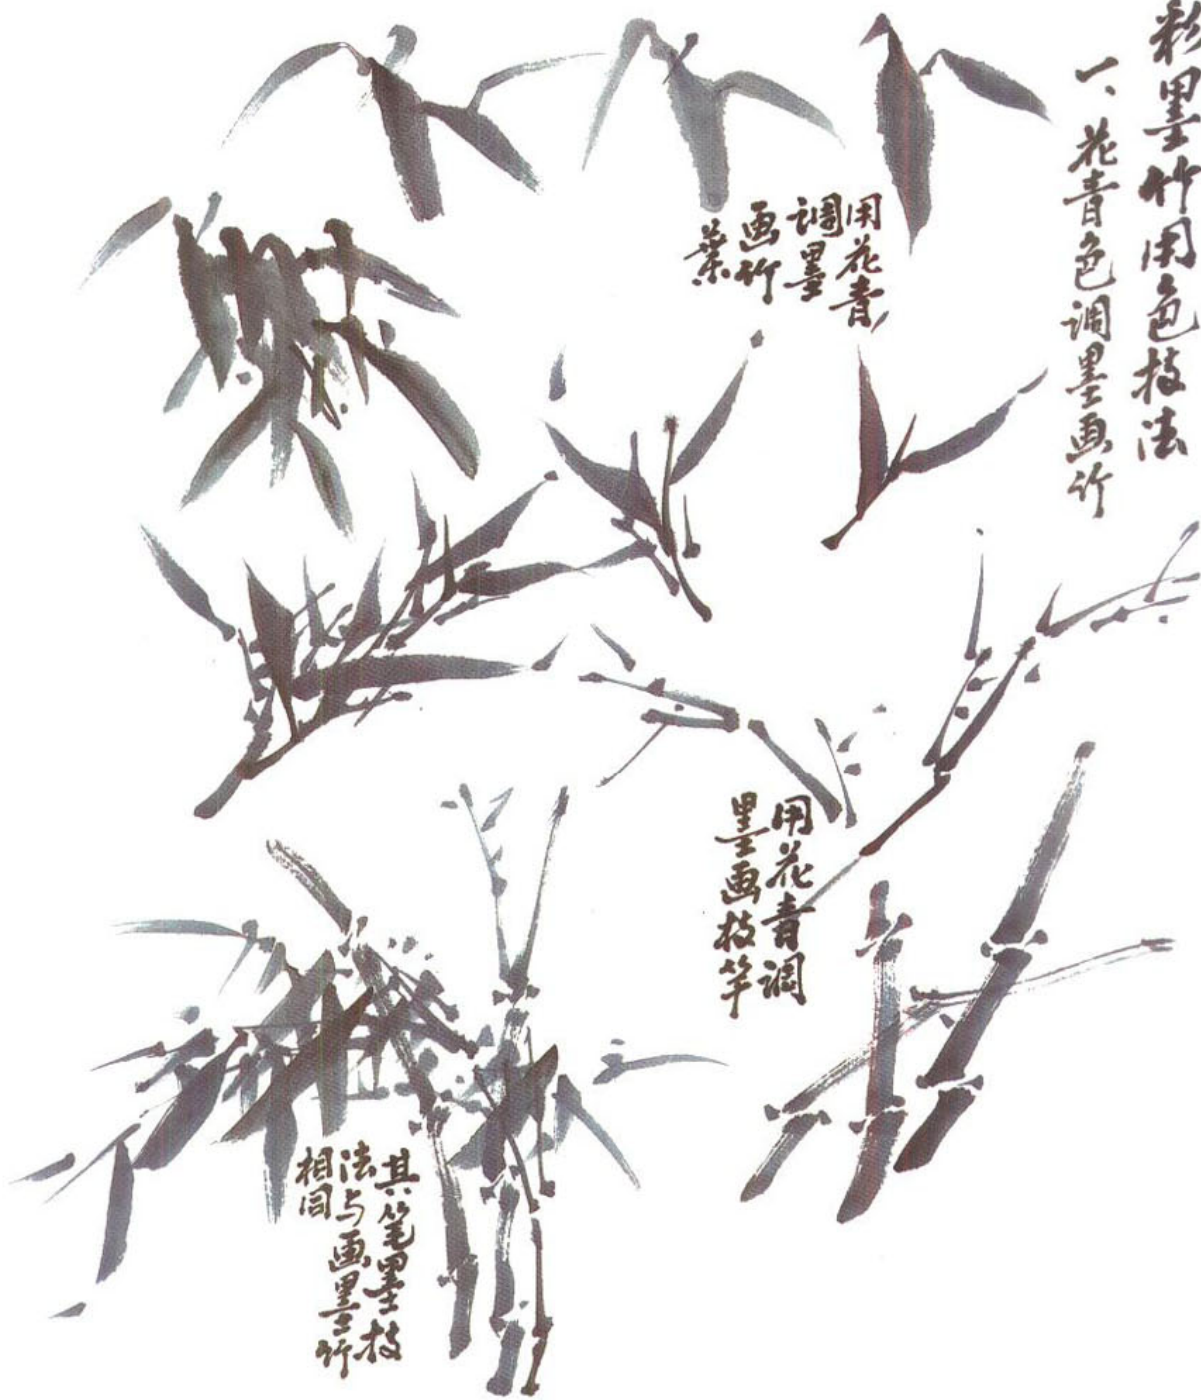 彩墨竹用色技法
一、花青色调墨画竹
用花青
调墨
画竹
叶
用花青调
墨画枝竿
其笔墨技
法与画墨竹
相同